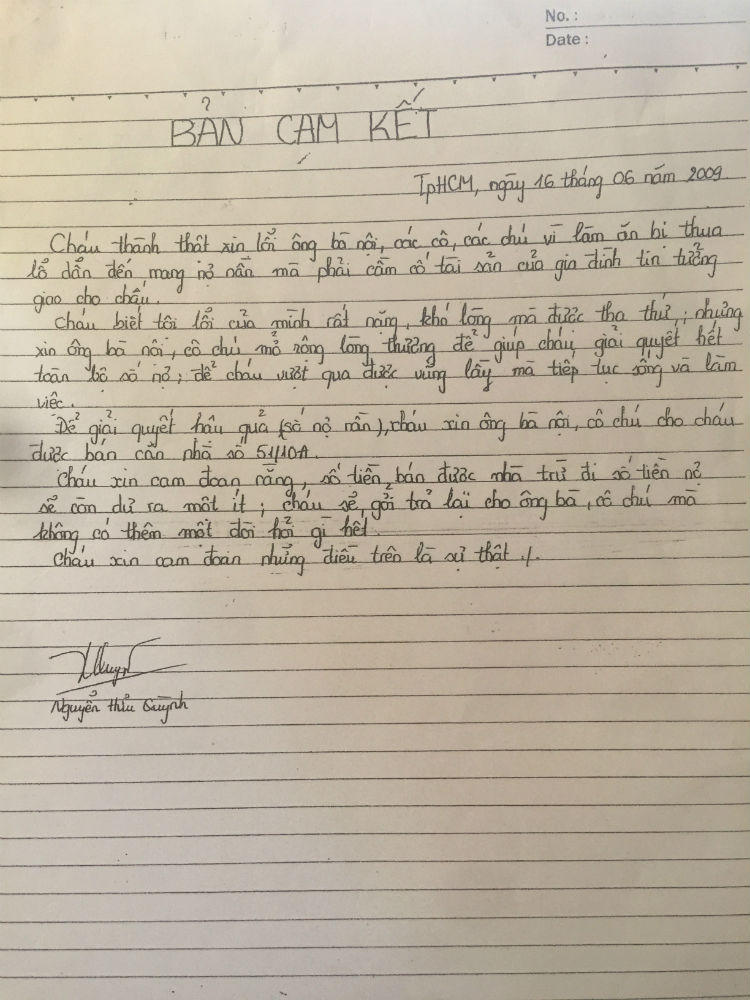 No. :
Date :
BẢN CAM KẾT
TpHCM, ngày 16 tháng 06 năm 2009
Cháu thành thật xin lỗi ông bà nội, các cô, các chú vì làm ăn bị thua
lổ dẫn đến mang nợ nần mà phải cầm cố tài sản của gia đình tin tưởng
giao cho cháu.
Cháu biết tội lổi của mình rất nặng, khó lòng mà được tha thứ; nhưng
xin ông bà nội, cô chú, mở rộng lòng thương để giúp cháu giải quyết hết
toàn bộ số nợ; để cháu vượt qua được vũng lầy mà tiếp tục sống và làm
việc.
Để giải quyết hậu quả (số nợ nần), cháu xin ông bà nội, cô chú cho cháu
được bán căn nhà số 51/10A.
Cháu xin cam đoan rằng, số tiền bán được nhà trừ đi số tiền nợ
sẽ còn dư ra một ít; cháu sẽ gởi trả lại cho ông bà, cô chú mà
không có thêm một đòi hỏi gì hết.
Cháu xin cam đoan những điều trên là sự thật ./.
Nguyễn Hữu Quỳnh